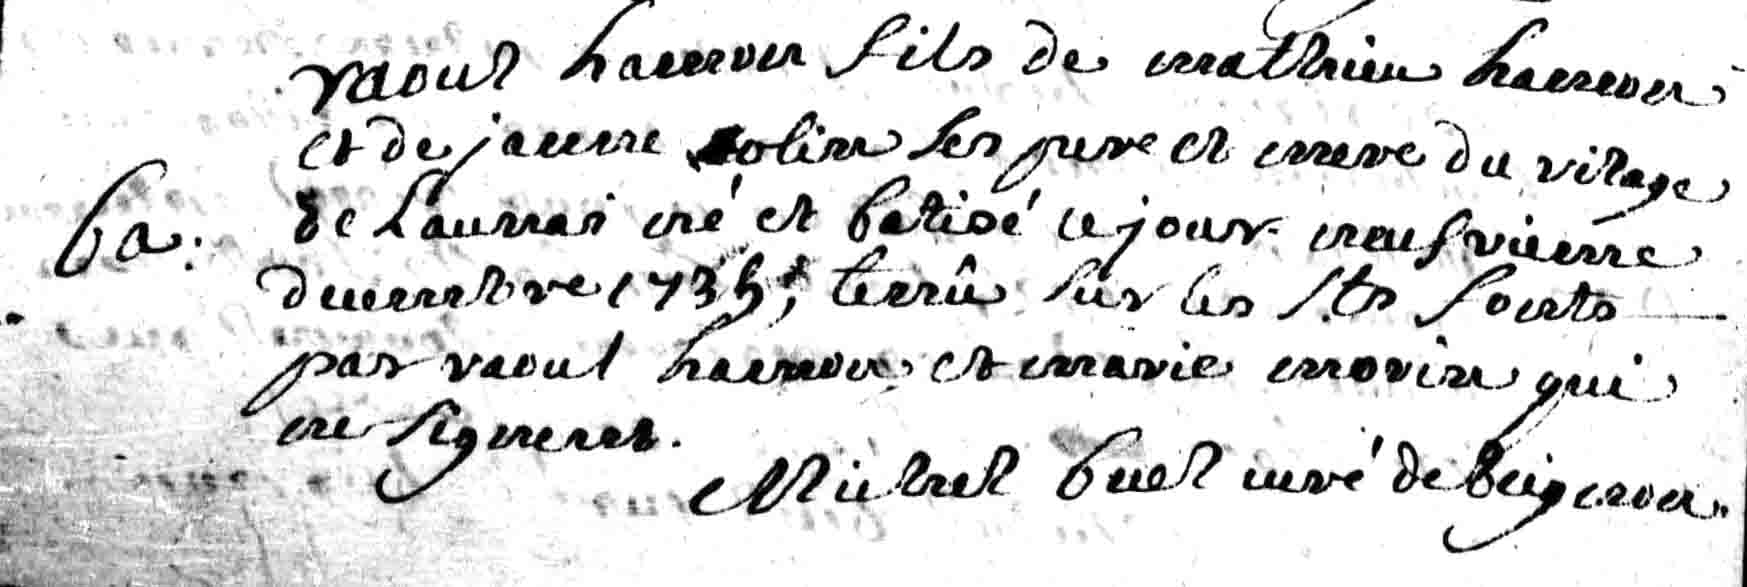 raoul hamon fils de mathieu hamon
et de janne colin ses pere et mere du vilage
ba. de Launai né et batisé ce jour neufvieme
decembre 1735, tenû sur les Sts fonts
par raoul hamon et marie morin qui
ne signent.
Michel buel curé de beignon.